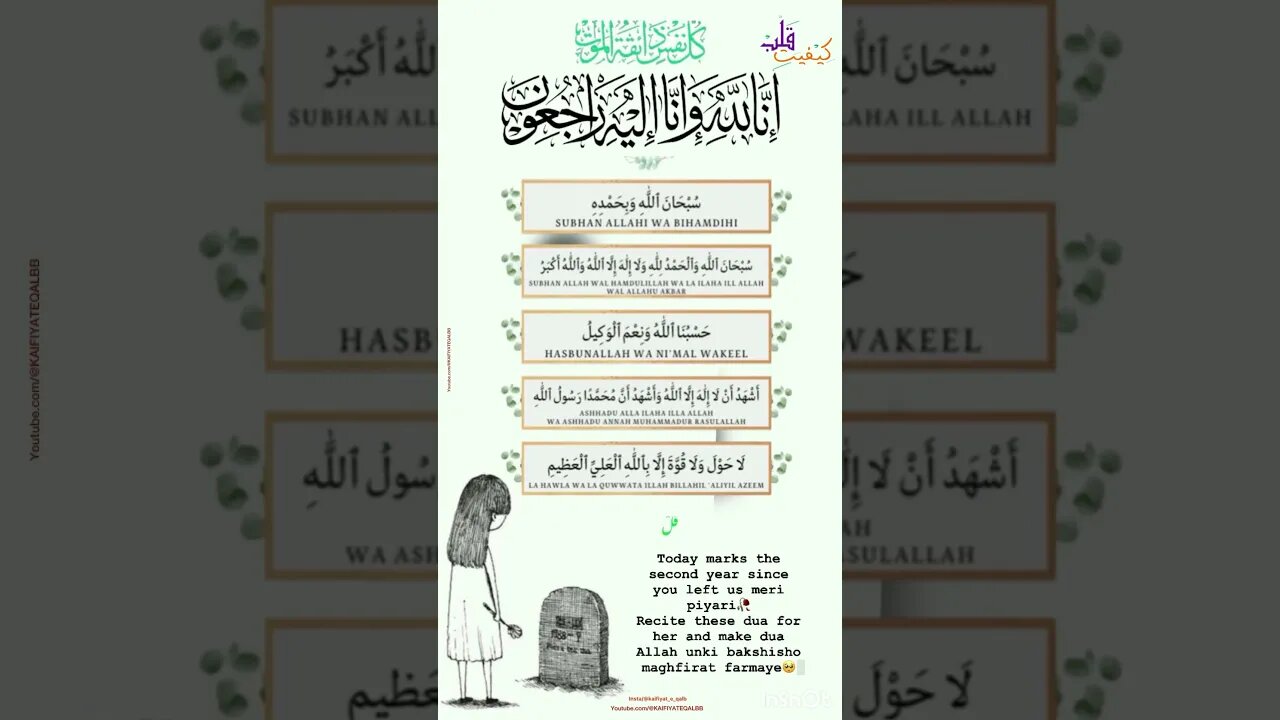 كُلُّ نَفْسٍ ذَائِقَةُ الْمَوْتِ
کیفیتِ قلب
إِنَّا لِلَّهِ وَإِنَّا إِلَيْهِ رَاجِعُونَ
سُبْحَانَ ٱللَّٰهِ وَبِحَمْدِهِ
SUBHAN ALLAHI WA BIHAMDIHI
سُبْحَانَ ٱللَّٰهِ وَٱلْحَمْدُ لِلَّٰهِ وَلَا إِلَٰهَ إِلَّا ٱللَّٰهُ وَٱللَّٰهُ أَكْبَرُ
SUBHAN ALLAH WAL HAMDULILLAH WA LA ILAHA ILL ALLAH
WAL ALLAHU AKBAR
حَسْبُنَا ٱللَّٰهُ وَنِعْمَ ٱلْوَكِيلُ
HASBUNALLAH WA NI'MAL WAKEEL
أَشْهَدُ أَنْ لَا إِلَٰهَ إِلَّا ٱللَّٰهُ وَأَشْهَدُ أَنَّ مُحَمَّدًا رَسُولُ ٱللَّٰهِ
ASHHADU ALLA ILAHA ILLA ALLAH
WA ASHHADU ANNAH MUHAMMADUR RASULALLAH
لَا حَوْلَ وَلَا قُوَّةَ إِلَّا بِٱللَّٰهِ ٱلْعَلِيِّ ٱلْعَظِيمِ
LA HAWLA WA LA QUWWATA ILLAH BILLAHIL 'ALIYIL AZEEM
Today marks the
second year since
you left us meri
piyari🥀
Recite these dua for
her and make dua
Allah unki bakshisho
maghfirat farmaye🥺
Insta/@kaifiyat_e_qalb
Youtube.com/@KAIFIYATEQALBB
Youtube.com/@KAIFIYATEQALBB
InShOt
Youtube.com/@KAIFIYATEQALBB
سُبْحَانَ ٱللَّٰهِ
SUBHAN ALLAH
HASB
أَشْهَدُ أَنْ لَا
WA ASH
ٱللَّٰهُ أَكْبَرُ
AHA ILL ALLAH
WAKEEL
رَسُولُ ٱللَّٰهِ
ASULALLAH
لَا حَوْلَ
ٱلْعَظِيمِ